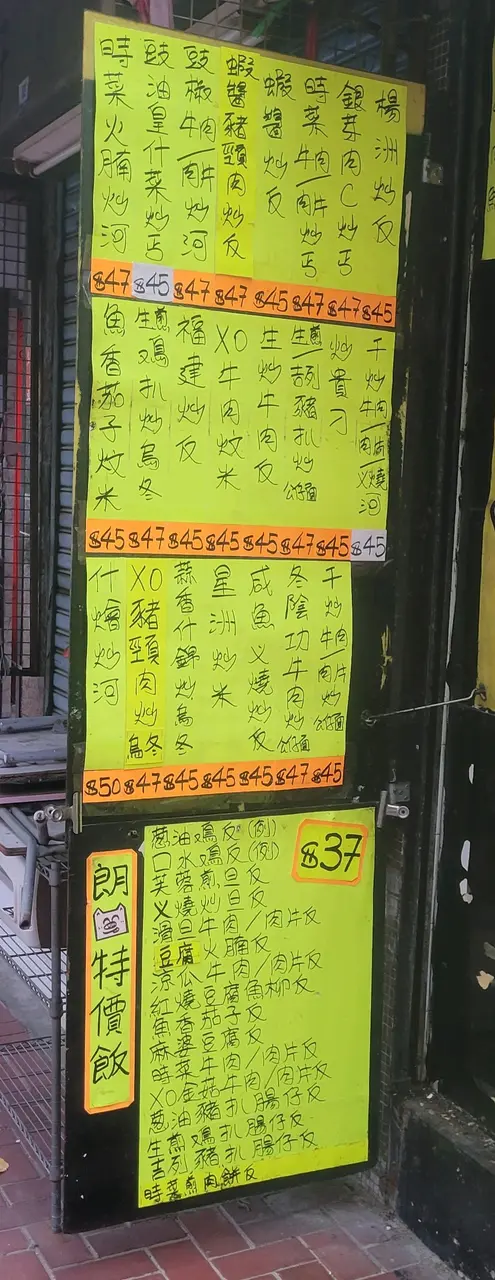 楊洲炒反
銀芽肉C炒丐
時菜牛肉/肉片炒丐
蝦醬炒反
蝦醬豬頸肉炒反
豉椒牛肉/肉片炒河
豉油皇什菜炒丐
時菜火腩炒河
$47 $45 $47 $47 $45 $47 $47 $45
干炒牛肉/肉片/义燒河
炒貴刁
生煎/吉列豬扒炒公仔面
生炒牛肉反
XO牛肉炆米
福建炒反
生煎鸡扒炒烏冬
魚香茄子炆米
$45 $47 $45 $45 $45 $47 $45 $45
干炒牛肉/肉片炒公仔面
冬陰功牛肉炒公仔面
咸魚义燒炒反
星洲炒米
蒜香什錦炒烏冬
XO豬頸肉炒烏冬
什燴炒河
$50 $47 $45 $45 $45 $47 $45
朗特價飯
$37
葱油鸡反(例)
口水鸡反(例)
芙蓉煎旦反
义燒炒旦反
滑旦牛肉/肉片反
豆腐火腩反
涼瓜牛肉/肉片反
紅燒豆腐魚柳反
魚香茄子反
麻婆豆腐反
時菜牛肉/肉片反
XO金菇牛肉/肉片反
葱油豬扒腸仔反
生煎鸡扒腸仔反
吉列豬扒腸仔反
時菜煎肉餅反